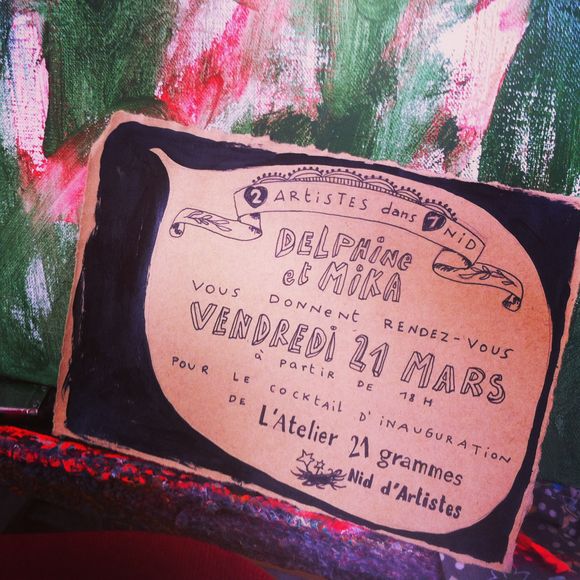 2 ARTiSTES dans 1 NiD
DELPHiNe
et MiKA
VOUS DONNENT RENDEZ-VOUS
VENDREDi 21 MARS
à PARTiR DE 18H
POUR LE COCKTAiL D'iNAUGURATiON
DE L'Atelier 21 grammes
Nid d'Artistes